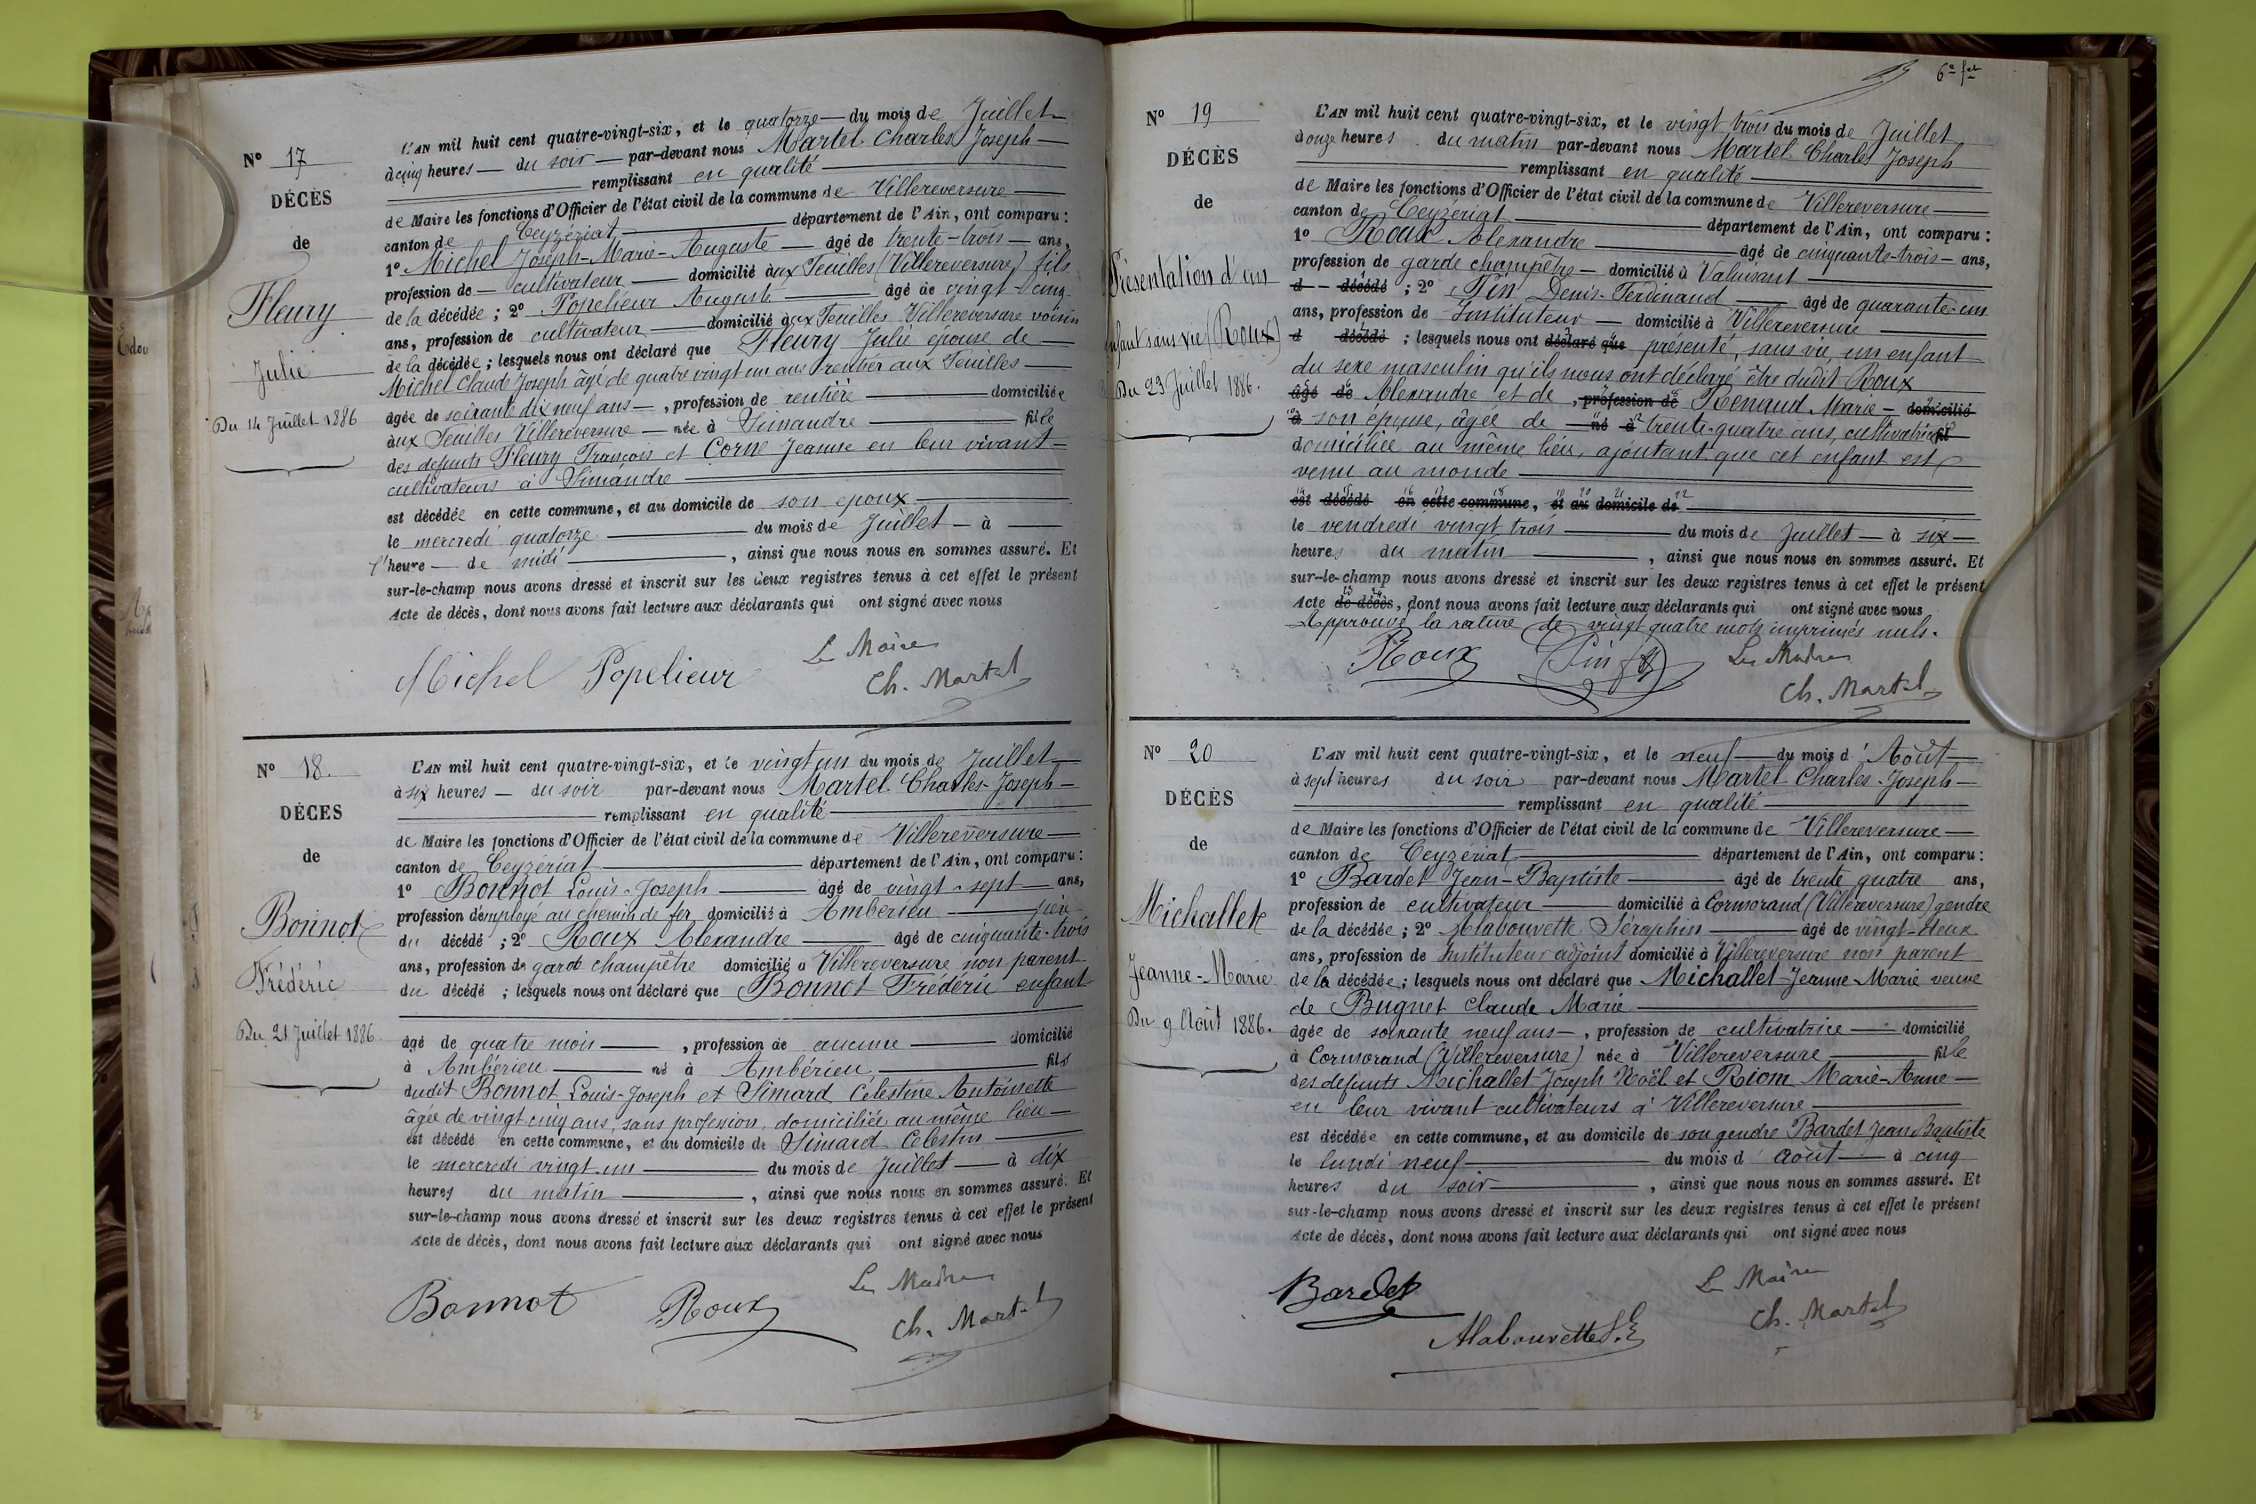 N° 17
DÉCÈS
de
Fleury
Julie
Du 14 Juillet 1886
L'AN mil huit cent quatre-vingt-six, et le quatorze du mois de Juillet
à cinq heures du soir par-devant nous Martel Charles Joseph
remplissant en qualité
de Maire les fonctions d'Officier de l'état civil de la commune de Villereversure
canton de Ceyzériat département de l'Ain, ont comparu :
1° Michel Joseph-Marie-Auguste âgé de trente-trois ans,
profession de cultivateur domicilié aux Feuilles (Villereversure) fils
de la décédée ; 2° Popelieur Auguste âgé de vingt-cinq
ans, profession de cultivateur domicilié aux Feuilles Villereversure voisin
de la décédée ; lesquels nous ont déclaré que Fleury Julie épouse de
Michel Claude Joseph âgé de quatre vingt un ans rentier aux Feuilles
âgée de soixante dix neuf ans, profession de rentière domiciliée
aux Feuilles Villereversure née à Simandre fille
des défunts Fleury François et Corne Jeanne en leur vivant
cultivateurs à Simandre
est décédée en cette commune, et au domicile de son epoux
le mercredi quatorze du mois de Juillet à
l'heure de midi, ainsi que nous nous en sommes assuré. Et
sur-le-champ nous avons dressé et inscrit sur les deux registres tenus à cet effet le présent
Acte de décès, dont nous avons fait lecture aux déclarants qui ont signé avec nous
Michel Popelieur Le Maire
Ch. Martel
N° 18.
DÉCES
de
Bonnot
Frédéric
Du 21 Juillet 1886.
L'AN mil huit cent quatre-vingt-six, et le vingt un du mois de Juillet
à six heures du soir par-devant nous Martel Charles-Joseph
remplissant en qualité
de Maire les fonctions d'Officier de l'état civil de la commune de Villereversure
canton de Ceyzériat département de l'Ain, ont comparu :
1° Bonnot Louis-Joseph âgé de vingt-sept ans,
profession d'employé au chemin de fer domicilié à Ambérieu père
du décédé ; 2° Roux Alexandre âgé de cinquante-trois
ans, profession de garde champêtre domicilié à Villereversure non parent
du décédé ; lesquels nous ont déclaré que Bonnot Frédéric enfant
âgé de quatre mois, profession de aucune domicilié
à Ambérieu né à Ambérieu fils
dudit Bonnot Louis-Joseph et Simard Célestine Antoinette
âgée de vingt cinq ans, sans profession, domiciliée au même lieu
est décédé en cette commune, et au domicile de Simard Célestin
le mercredi vingt-un du mois de Juillet à dix
heures du matin, ainsi que nous nous en sommes assuré. Et
sur-le-champ nous avons dressé et inscrit sur les deux registres tenus à cet effet le présent
Acte de décès, dont nous avons fait lecture aux déclarants qui ont signé avec nous
Bonnot Roux Le Maire
Ch. Martel
6e fet
N° 19
DÉCÈS
de
Présentation d'un
enfant sans vie (Roux)
Du 23 Juillet 1886.
L'AN mil huit cent quatre-vingt-six, et le vingt trois du mois de Juillet
à onze heures du matin par-devant nous Martel Charles Joseph
remplissant en qualité
de Maire les fonctions d'Officier de l'état civil de la commune de Villereversure
canton de Ceyzériat département de l'Ain, ont comparu :
1° Roux Alexandre âgé de cinquante-trois ans,
profession de garde champêtre domicilié à Valuisant
d décédé ; 2° Pin Denis-Ferdinand âgé de quarante-un
ans, profession de Instituteur domicilié à Villereversure
d décédé ; lesquels nous ont déclaré que présenté, sans vie, un enfant
du sexe masculin qu'ils nous ont déclaré être dudit Roux
âgé de Alexandre et de, profession de Renaud Marie domicilié
à son épouse, âgée de né à trente-quatre ans, cultivatrice fil
domiciliée au même lieu, ajoutant que cet enfant est
venu au monde
est décédé en cette commune, et au domicile de
le vendredi vingt trois du mois de Juillet à six
heures du matin, ainsi que nous nous en sommes assuré. Et
sur-le-champ nous avons dressé et inscrit sur les deux registres tenus à cet effet le présent
Acte de décès, dont nous avons fait lecture aux déclarants qui ont signé avec nous
Approuvé la rature de vingt quatre mots imprimés nuls.
Roux Pin Le Maire
Ch. Martel
N° 20
DÉCÈS
de
Michallet
Jeanne-Marie
Du 9 Août 1886.
L'AN mil huit cent quatre-vingt-six, et le neuf du mois d'Août
à sept heures du soir par-devant nous Martel Charles-Joseph
remplissant en qualité
de Maire les fonctions d'Officier de l'état civil de la commune de Villereversure
canton de Ceyzériat département de l'Ain, ont comparu :
1° Bardet Jean-Baptiste âgé de trente quatre ans,
profession de cultivateur domicilié à Cormorand (Villereversure) gendre
de la décédée ; 2° Alabouvette Séraphin âgé de vingt-deux
ans, profession de Instituteur adjoint domicilié à Villereversure non parent
de la décédée ; lesquels nous ont déclaré que Michallet Jeanne Marie veuve
de Buguet Claude Marie
âgée de soixante neuf ans, profession de cultivatrice domicilié
à Cormorand (Villereversure) née à Villereversure fille
des défunts Michallet Joseph Noël et Riom Marie-Anne
en leur vivant cultivateurs à Villereversure
est décédée en cette commune, et au domicile de son gendre Bardet Jean Baptiste
le lundi neuf du mois d'août à cinq
heures du soir, ainsi que nous nous en sommes assuré. Et
sur-le-champ nous avons dressé et inscrit sur les deux registres tenus à cet effet le présent
Acte de décès, dont nous avons fait lecture aux déclarants qui ont signé avec nous
Bardet Le Maire
Alabouvette S. Ch. Martel